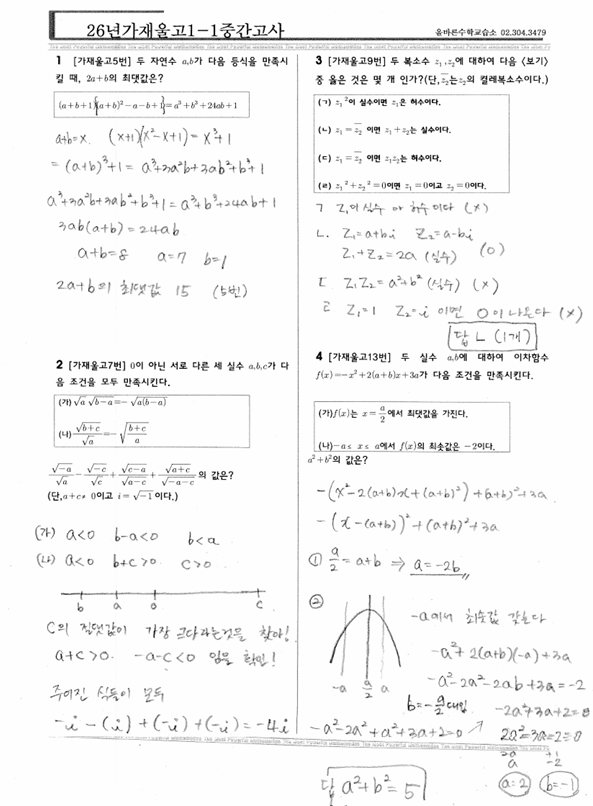 26년가재울고1-1중간고사
올바른수학교습소 02.304.3479
1 [가재울고5번] 두 자연수 a,b가 다음 등식을 만족시
킬 때, 2a+b의 최댓값은?
(a+b+1){(a+b)²-a-b+1}=a³+b³+24ab+1
a+b=x. (x+1)(x²-x+1)=x³+1
=(a+b)³+1= a³+3a²b+3ab²+b³+1
a³+3a²b+3ab²+b³+1=a³+b³+24ab+1
3ab(a+b)=24ab
a+b=8 a=7 b=1
2a+b의 최댓값 15 (5번)
2 [가재울고7번] 0이 아닌 서로 다른 세 실수 a,b,c가 다
음 조건을 모두 만족시킨다.
(가) √a √(b-a)=-√(a(b-a))
(나) √(b+c)/√a=-√((b+c)/a)
√(-a)/√a-√(-c)/√c+√(c-a)/√(a-c)+√(a+c)/√(-a-c)의 값은?
(단,a+c≠0이고 i=√-1이다.)
(가) a<0 b-a<0 b<a
(나) a<0 b+c>0 c>0
b a 0 c
C의 절댓값이 가장 크다라는것을 찾아!
a+c>0. -a-c<0 임을 확인!
주어진 식들이 모두
-i-(i)+(-i)+(-i)=-4i
3 [가재울고9번] 두 복소수 z₁,z₂에 대하여 다음 <보기>
중 옳은 것은 몇 개 인가?(단,z̄₂는z₂의 켤레복소수이다.)
(ㄱ) z₁²이 실수이면 z₁은 허수이다.
(ㄴ) z₁=z̄₂ 이면 z₁+z₂는 실수이다.
(ㄷ) z₁=z̄₂ 이면 z₁z₂는 허수이다.
(ㄹ) z₁²+z₂²=0이면 z₁=0이고 z₂=0이다.
ㄱ Z₁이 실수 or 허수이다 (×)
ㄴ. Z₁=a+bi Z₂=a-bi
Z₁+Z₂=2a (실수) (O)
ㄷ Z₁Z₂=a²+b² (실수) (×)
ㄹ Z₁=1 Z₂=i 이면 0이 나온다 (×)
답 ㄴ (1개)
4 [가재울고13번] 두 실수 a,b에 대하여 이차함수
f(x)=-x²+2(a+b)x+3a가 다음 조건을 만족시킨다.
(가)f(x)는 x=a/2에서 최댓값을 가진다.
(나)-a≤x≤a에서 f(x)의 최솟값은 -2이다.
a²+b²의 값은?
-(x²-2(a+b)x+(a+b)²)+(a+b)²+3a
-(x-(a+b))²+(a+b)²+3a
① a/2=a+b ⇒ a=-2b
②
-a a/2 a
-a에서 최솟값 갖는다
-a²+2(a+b)(-a)+3a
-a²-2a²-2ab+3a=-2
b=-a/2 대입
-a²-2a²+a²+3a+2=0
-2a²+3a+2=0
2a²-3a-2=0
2a +1
a -2
a=2 b=-1
답 a²+b²=5